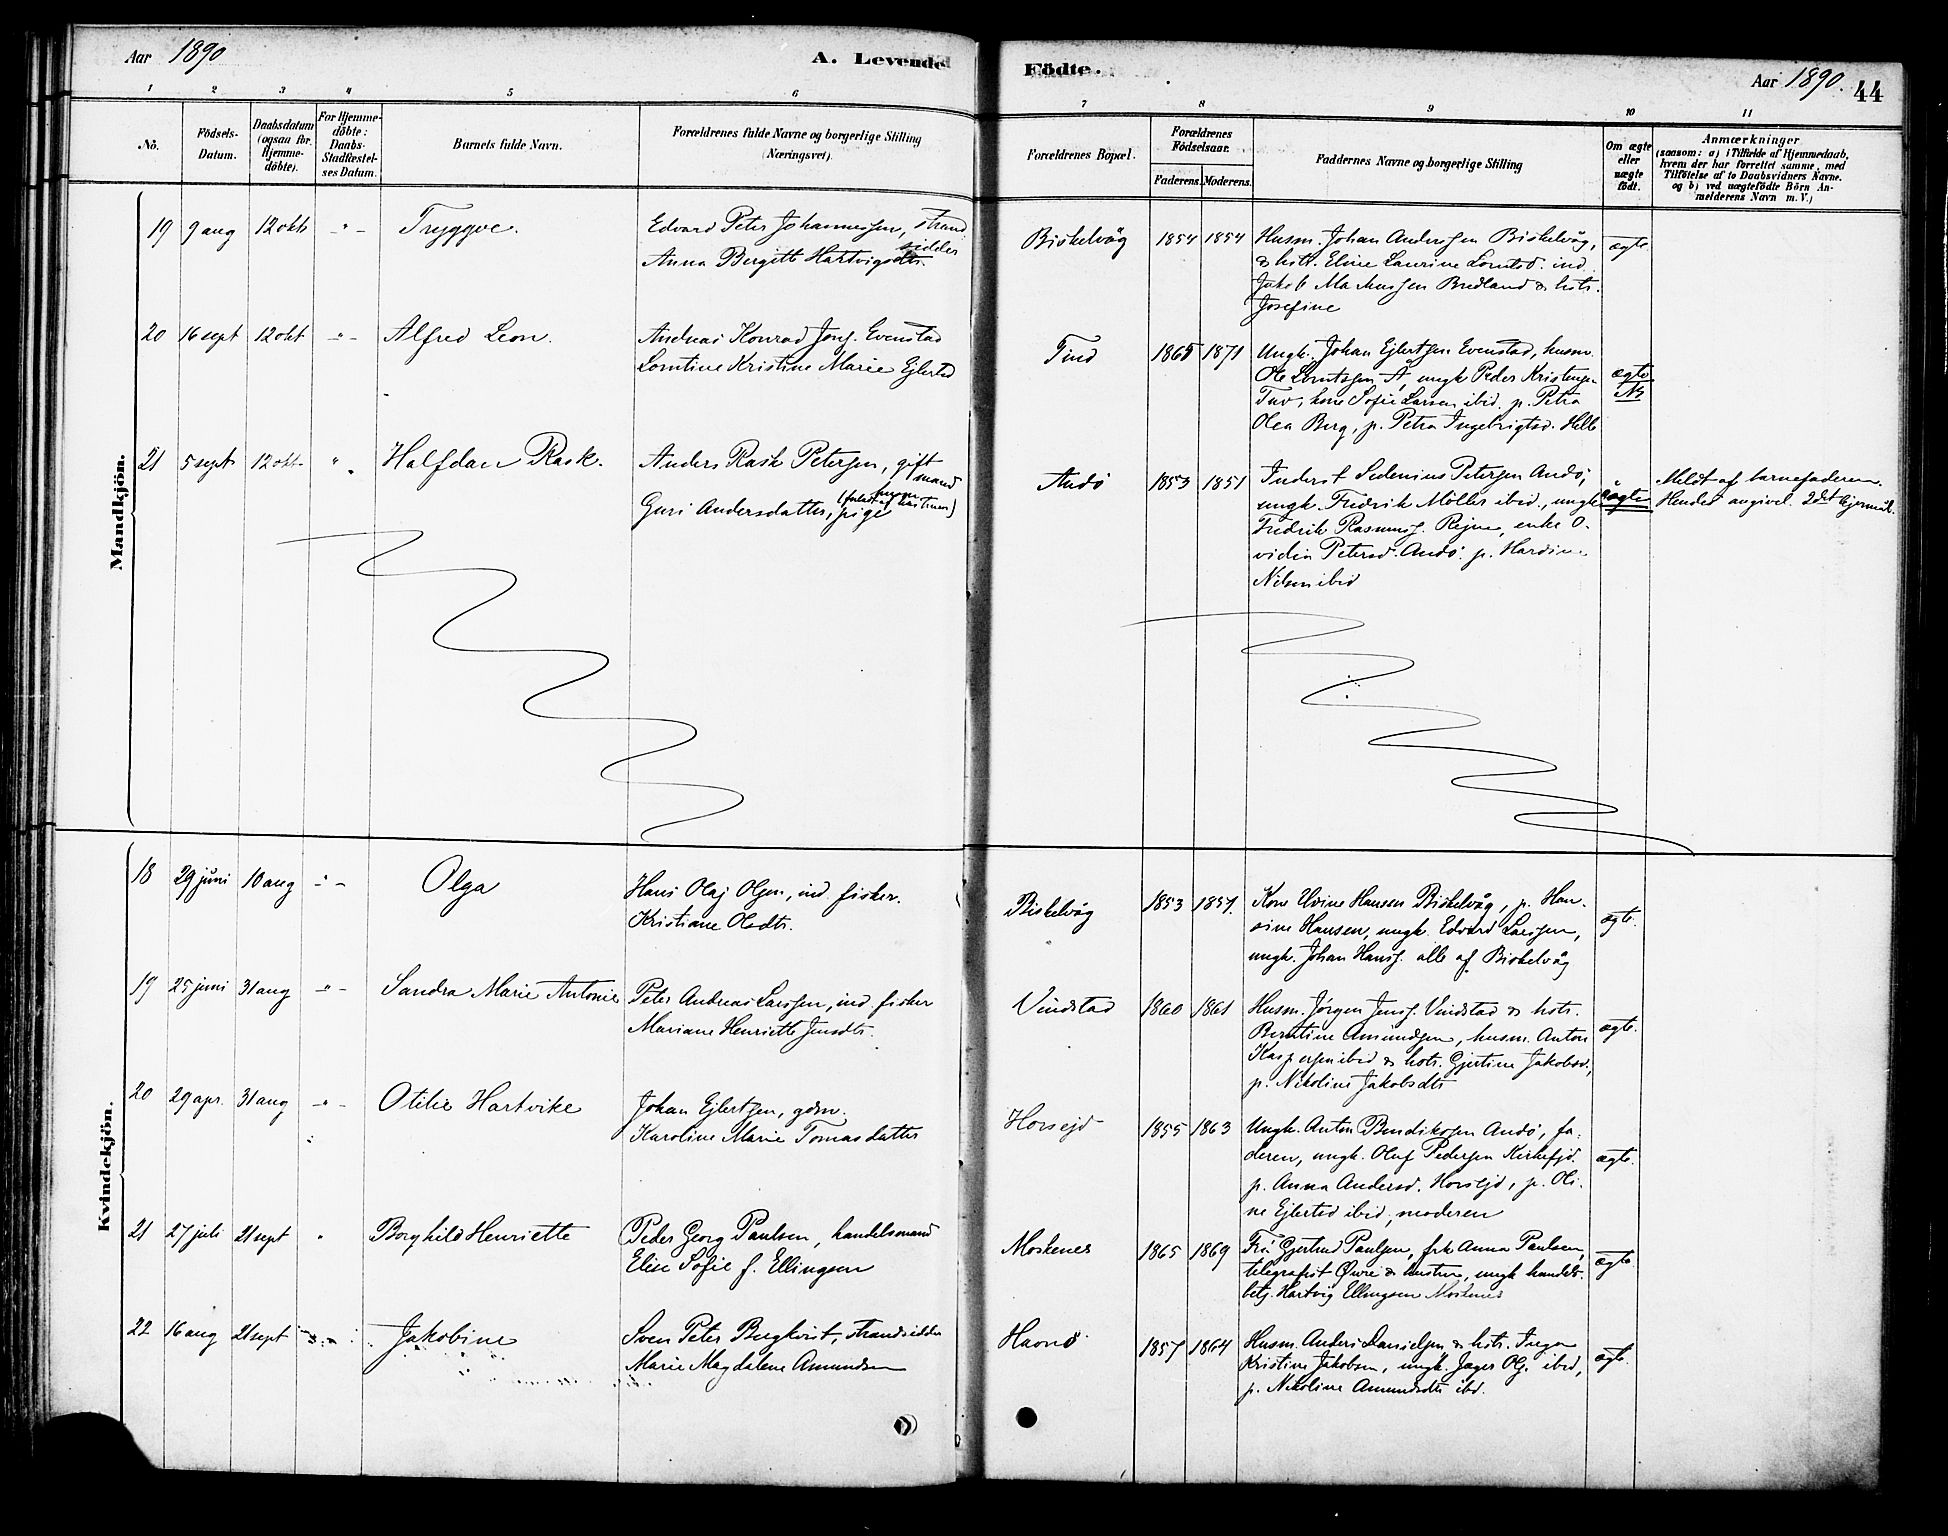 Aar 1890
A. Levende
Födte.
Aar 1890. 44
1 2 3 4 5 6
7 8 9 10 11
No.
Födsels-
Datum.
Daabsdatum
(ogsaa for
Hjemme-
döbte).
For Hjemme-
döbte:
Daabs-
Stadfæstel-
ses Datum.
Barnets fulde Navn.
Forældrenes fulde Navne og borgerlige Stilling
(Næringsvei).
Forældrenes Bopæl.
Forældrenes
Födselsaar.
Faderens. Moderens.
Faddernes Navne og borgerlige Stilling
Om ægte
eller
uægte
födt.
Anmærkninger
(saasom: a) i Tilfælde af Hjemmedaab,
hvem der har forrettet samme, med
Tilföielse af to Daabsvidners Navne.
og b) ved uægtefödte Börn An-
melderens Navn m. V.)
Mandkjön.
19 9 aug 12 okt -"- Tryggve.
Edvard Peter Johannessen, strand
sidder
Anna Bergitte Hartvigsdtr.
Biskelvåg 1854 1854
Husm. Johan Anderssen Biskelvåg,
& hstr. Eline Laurine Lorntsd. ind.
Jakob Markussen Bredland & hstr.
Josefine
ægte.
20 16 sept 12 okt -"- Alfred Leon.
Andreas Konrad Jensf. Evenstad
Lorntine Kristine Marie Ejlertsd
Tind 1865 1871
Ungk. Johan Ejlertsen Evenstad, husm.
Ole Lorntssen Å, ungk Peder Kristensen
Tuv, kone Sofie Larsen ibid. p. Petra
Olea Berg, p. Petra Ingebrigtsd. Helle
ægte
Nb
21 5 sept 12 okt " Halfdan Rask.
Anders Rask Petersen, gift
mand
Guri Andersdatter, pige
Andö 1853 1851
Inderst Sedenius Petersen Andö,
ungk. Fredrik Möller ibid., ungk
Fredrik Rasmuss. Rejne, enke O-
vidia Petersd. Andö. p. Hardine
Nilsen ibid
uægte
Meldt af barnefaderen.
Hendes angivel. 2det lejermål.
Kvindekjön.
18 29 juni 10 aug -"- Olga
Hans Olaj Olsen, ind. fisker.
Kristiane Olsdtr.
Biskelvåg 1853 1857.
Kone Elvine Hansen Biskelvåg, p. Han-
sine Hansen, ungk. Edvard Larssen,
ungk. Johan Hansf. alle af Biskelvåg
ægte.
19 25 juni 31 aug -"- Sandra Marie Antonie
Peter Andreas Larssen, ind. fisker
Mariane Henriette Jensdtr.
Vindstad 1860 1861
Husm. Jørgen Jensf. Vindstad & hstr.
Berntine Amundsen, husm. Anton
Kaspersen ibid & hstr. Gjertine Jakobsd.,
p. Nikoline Jakobsdtr
ægte.
20 29 apr. 31 aug -"- Otilie Hartvike
Johan Ejlertsen, gdm.
Karoline Marie Tomasdatter
Horsejd 1855 1863
Ungk. Anton Bendiksen Andö, fa-
deren, ungk. Oluf Pedersen Kirkefjd.
p. Anna Andersd. Horsejd, p. Oli-
ne Ejlertsd ibid, moderen
ægte.
21 27 juli 21 sept " Borghild Henriette
Peder Georg Paulsen, handelsmand
Elise Sofie f. Ellingsen
Moskenes 1865 1869
Fru Gjertrud Paulsen, frk Anna Paulsen,
telegrafist Øwre & hustru, ungk handels-
betj. Hartvig Ellingsen Moskenes
ægte.
22 16 aug 21 sept -"- Jakobine
Sven Peter Bergkvist, strandsidder
Marie Magdalene Amundsen
Havnö 1857 1864
Husm. Anders Danielsen & hstr. Inga
Kristine Jakobsen, ungk. Jæger Ols. ibid,
p. Nikoline Amundsdtr ibd.
ægte.